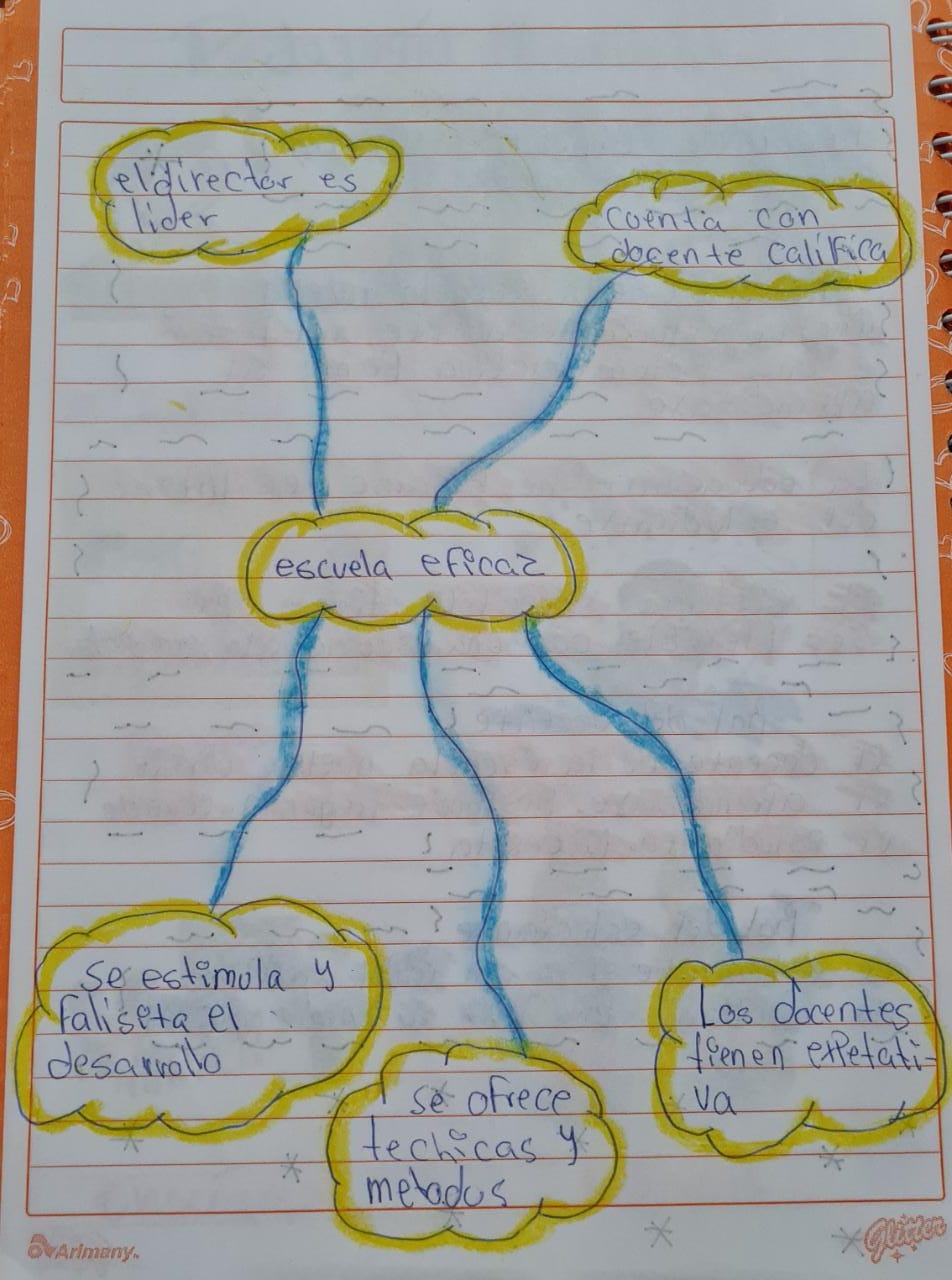 el director es
lider
cuenta con
docente califica
escuela eficaz
se estimula y
faliseta el
desarrollo
Los docentes
tienen expetati-
va
se ofrece
techicas y
metodos
Arimany.
Glitter